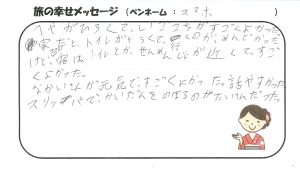 旅の幸せメッセージ (ペンネーム : スミホ )
へやがひろくて、いごこちがすごくよかった。
家だと、トイレがとおくて行くのが、めんどうだ
けど、宿は、トイレとか、せんめんじょが近くて、すご
くよかった。
なかいさんが元気で、すごくよかった。話やすかった。
スリッパで、かいだんをのぼるのがたいへんだった。